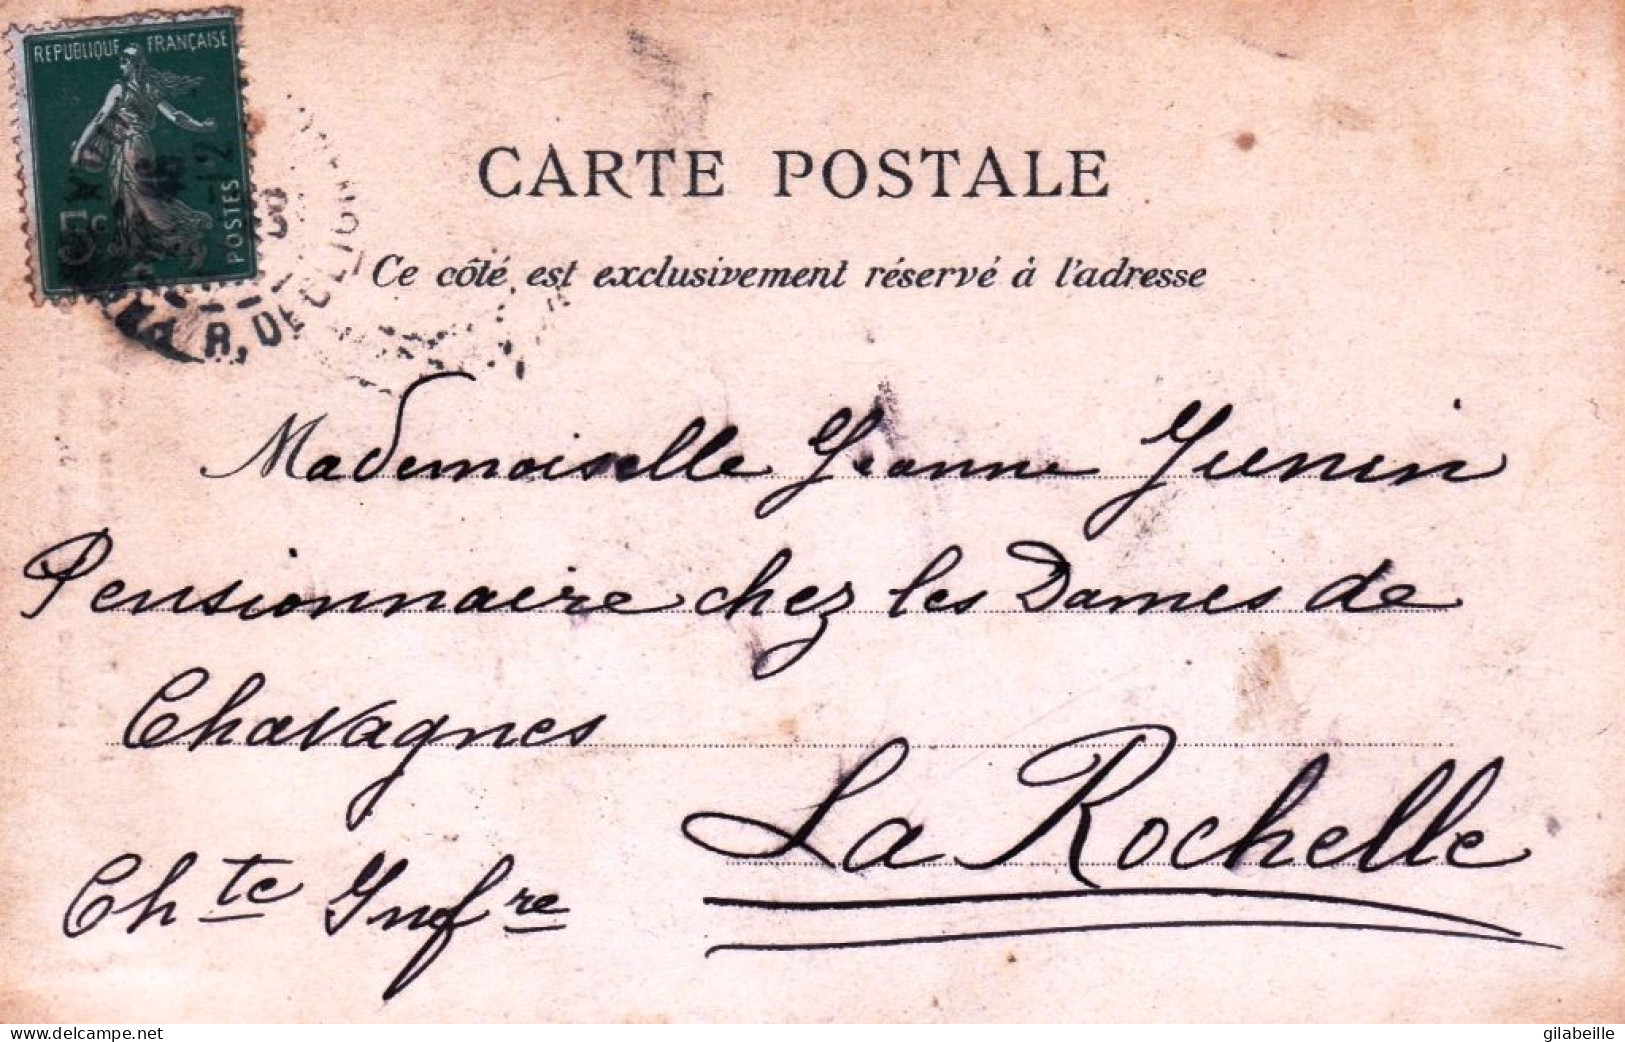 REPUBLIQUE FRANÇAISE
5c
POSTES
R. DE CLIGN
CARTE POSTALE
Ce côté est exclusivement réservé à l'adresse
Mademoiselle Jeanne Junin
Pensionnaire chez les Dames de
Chavagnes
La Rochelle
Chte Infre
delcampe.net
gilabeille